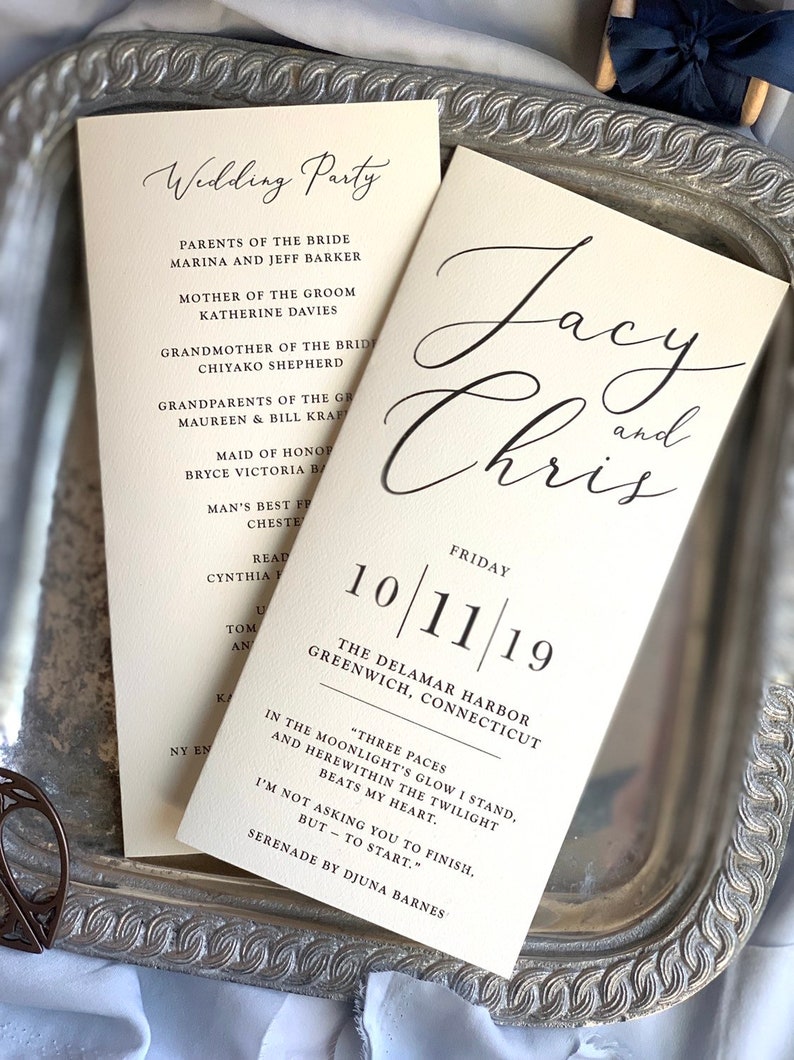 Wedding Party
PARENTS OF THE BRIDE
MARINA AND JEFF BARKER
MOTHER OF THE GROOM
KATHERINE DAVIES
GRANDMOTHER OF THE BRIDE
CHIYAKO SHEPHERD
GRANDPARENTS OF THE
MAUREEN & BILL
MAID OF HONOR
BRYCE VICTORIA
MAN'S BEST
CYNTHIA
TOM
NY
Jacy
and
Chris
FRIDAY
10|11|19
THE DELAMAR HARBOR
GREENWICH, CONNECTICUT
“THREE PACES
IN THE MOONLIGHT'S GLOW I STAND,
AND HEREWITHIN THE TWILIGHT
BEATS MY HEART.
I'M NOT ASKING YOU TO FINISH,
BUT – TO START.”
SERENADE BY DJUNA BARNES